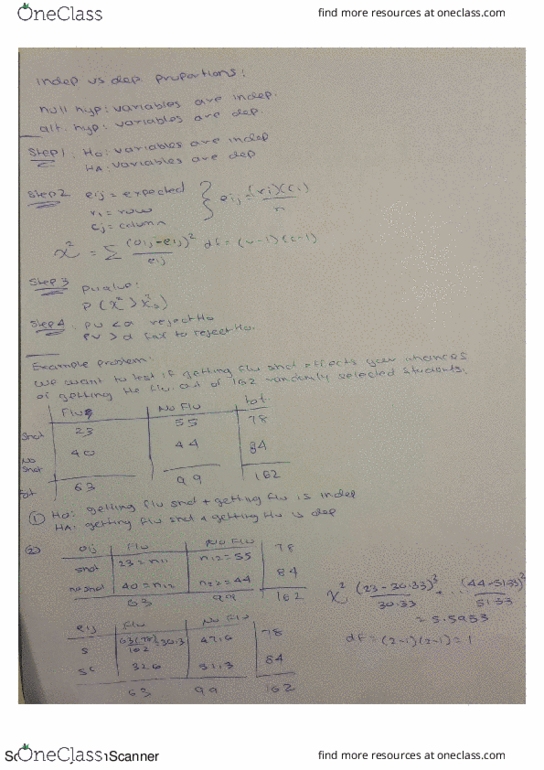 OneClass
find more resources at oneclass.com
indep vs dep proportions:
null hyp: variables are indep.
alt. hyp: variables are dep.
Step 1: Ho: variables are indep
HA: variables are dep
Step 2 eij = expected
ri = row
cj = column
} eij = (ri)(ci)
n
x² = Σ (oij-eij)² df = (r-1)(c-1)
eij
Step 3 pvalue:
P(x² > x²s)
Step 4: PV < α reject Ho
PV > α fail to reject Ho.
Example problem:
we want to test if getting flu shot effects your chances
of getting the flu. out of 162 randomly selected students.
Flu No Flu tot.
Shot 23 55 78
No shot 40 44 84
tot 63 99 162
① Ho: getting flu shot + getting flu is indep
HA: getting flu shot + getting flu is dep
② oij Flu No Flu
shot 23=n11 n12=55 78
no shot 40=n12 n22=44 84
63 99 162
x² (23-30.33)² ... (44-51.33)²
30.33 51.33
= 5.5953
df = (2-1)(2-1) = 1
eij Flu No Flu
S 63(78) = 30.3 47.6 78
162
Sᶜ 32.6 51.3 84
63 99 162
OneClass
Scanner
find more resources at oneclass.com